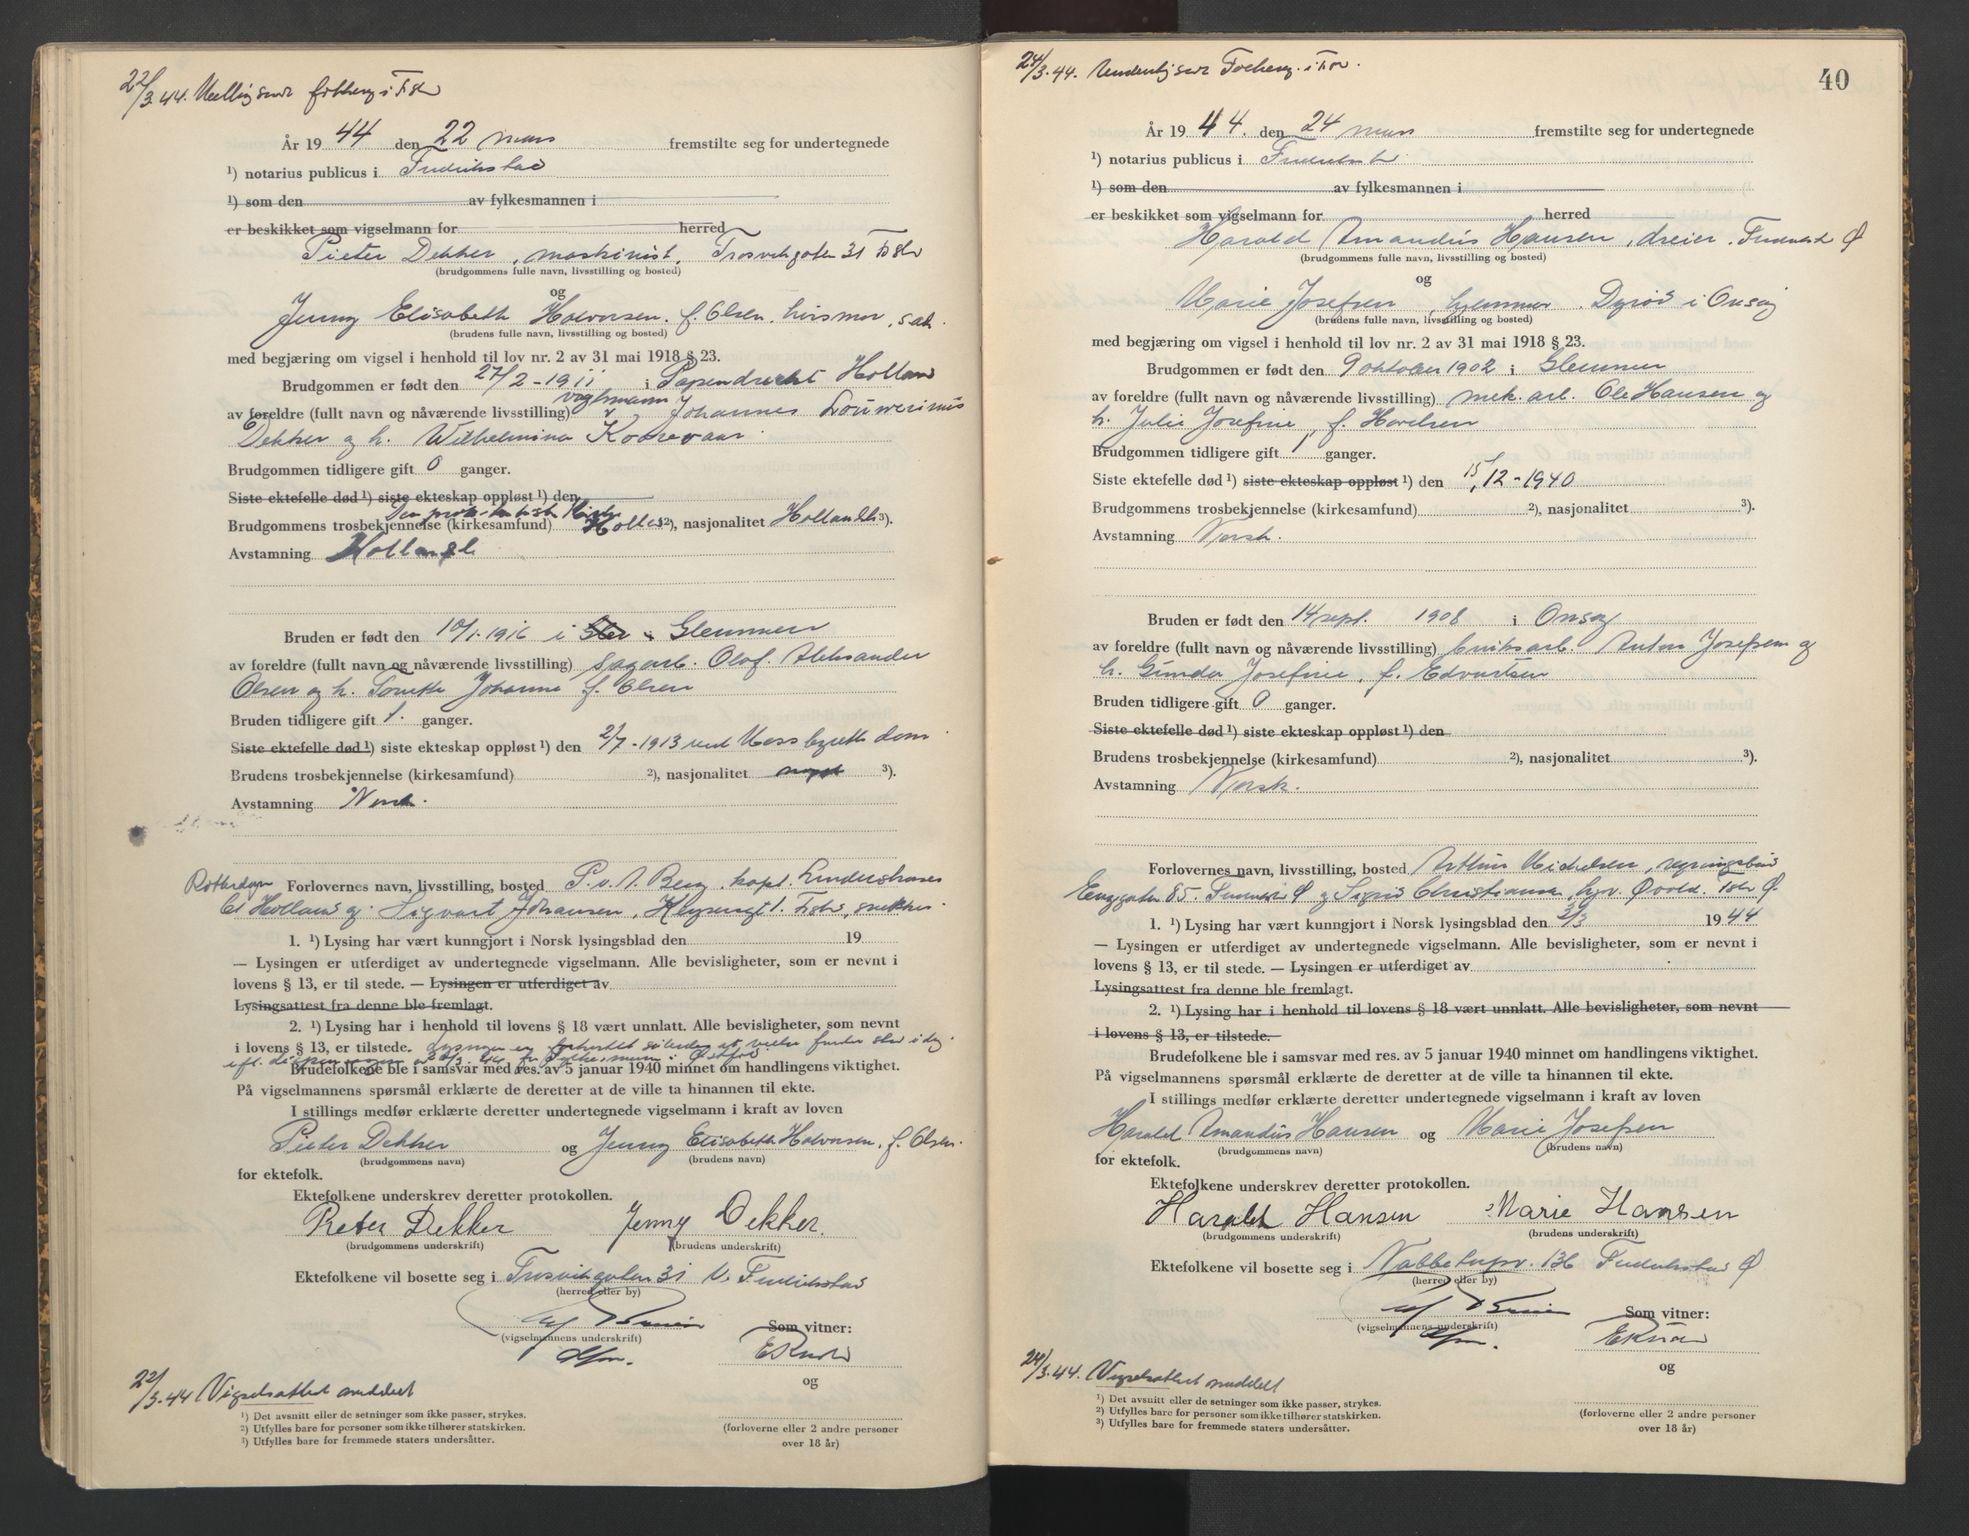 22/3.44.
År 1944 den 22 mars fremstilte seg for undertegnede
¹) notarius publicus i Fredrikstad
¹) som den av fylkesmannen i
er beskikket som vigselmann for herred
Pieter Dekker, maskinist, Trosvikgaten 31
(brudgommens fulle navn, livsstilling og bosted)
og
Jenny Elisabeth Halvorsen. f. Olsen. husmor,
(brudens fulle navn, livsstilling og bosted)
med begjæring om vigsel i henhold til lov nr. 2 av 31 mai 1918 § 23.
Brudgommen er født den 27/2-1911 i Papendrecht Holland
av foreldre (fullt navn og nåværende livsstilling) Johannes
Dekker og h. Wilhelmina
Brudgommen tidligere gift 0 ganger.
Siste ektefelle død ¹) siste ekteskap oppløst ¹) den
Brudgommens trosbekjennelse (kirkesamfund) ²), nasjonalitet ³).
Avstamning
Bruden er født den 10/1-1916 i Glemmen
av foreldre (fullt navn og nåværende livsstilling) sagarb. Olof. Aleksander
Olsen og h. Johanne f. Olsen
Bruden tidligere gift 1. ganger.
Siste ektefelle død ¹) siste ekteskap oppløst ¹) den 2/7-1913 ved Moss byretts dom
Brudens trosbekjennelse (kirkesamfund) ²), nasjonalitet norsk ³).
Avstamning Norsk.
Forlovernes navn, livsstilling, bosted P. v. d. Berg, kapt.
Holland og Sigvart Johansen,
1. ¹) Lysing har vært kunngjort i Norsk lysingsblad den 19
— Lysingen er utferdiget av undertegnede vigselmann. Alle bevisligheter, som er nevnt i
lovens § 13, er til stede. — Lysingen er utferdiget av
Lysingsattest fra denne ble fremlagt.
2. ¹) Lysing har i henhold til lovens § 18 vært unnlatt. Alle bevisligheter, som nevnt
i lovens § 13, er tilstede. Lysingen er forkortet således at vielse finder sted i dag.
Brudefolkene ble i samsvar med res. av 5 januar 1940 minnet om handlingens viktighet.
På vigselmannens spørsmål erklærte de deretter at de ville ta hinannen til ekte.
I stillings medfør erklærte deretter undertegnede vigselmann i kraft av loven
Pieter Dekker og Jenny Elisabeth Halvorsen, f. Olsen.
(brudgommens navn) (brudens navn)
for ektefolk.
Ektefolkene underskrev deretter protokollen.
Pieter Dekker Jenny Dekker.
(brudgommens underskrift) (brudens underskrift)
Ektefolkene vil bosette seg i Trosvikgaten 31 Fredrikstad
(herred eller by)
Som vitner:
(vigselmannens underskrift)
og
22/3.44 Vigselsattest meddelt
¹) Det avsnitt eller de setninger som ikke passer, strykes.
²) Utfylles bare for personer som ikke tilhører statskirken.
³) Utfylles bare for fremmede staters undersåtter.
(forloverne eller 2 andre personer
over 18 år)
24/3.44.
40
År 1944. den 24 mars fremstilte seg for undertegnede
¹) notarius publicus i Fredrikstad
¹) som den av fylkesmannen i
er beskikket som vigselmann for herred
Harald Amandus Hansen, dreier, Fredrikstad Ø
(brudgommens fulle navn, livsstilling og bosted)
og
Marie Josefsen, Dyrød i Onsøy
(brudens fulle navn, livsstilling og bosted)
med begjæring om vigsel i henhold til lov nr. 2 av 31 mai 1918 § 23.
Brudgommen er født den 9 oktober 1902 i Glemmen
av foreldre (fullt navn og nåværende livsstilling) mek. arb. Ole Hansen og
h. Julie Josefine, f.
Brudgommen tidligere gift 1 ganger.
Siste ektefelle død ¹) siste ekteskap oppløst ¹) den 15/12-1940
Brudgommens trosbekjennelse (kirkesamfund) ²), nasjonalitet ³).
Avstamning Norsk.
Bruden er født den 14 sept. 1908 i Onsøy
av foreldre (fullt navn og nåværende livsstilling) bruksarb. Anton Josefsen og
h. Gunda Josefine, f. Edvartsen
Bruden tidligere gift 0 ganger.
Siste ektefelle død ¹) siste ekteskap oppløst ¹) den
Brudens trosbekjennelse (kirkesamfund) ²), nasjonalitet ³).
Avstamning Norsk.
Forlovernes navn, livsstilling, bosted Arthur Michelsen,
Enggaten 85. Fredrikstad Ø og Sigrid Christiansen,
1. ¹) Lysing har vært kunngjort i Norsk lysingsblad den 3/3 1944
— Lysingen er utferdiget av undertegnede vigselmann. Alle bevisligheter, som er nevnt i
lovens § 13, er til stede. — Lysingen er utferdiget av
Lysingsattest fra denne ble fremlagt.
2. ¹) Lysing har i henhold til lovens § 18 vært unnlatt. Alle bevisligheter, som nevnt
i lovens § 13, er tilstede.
Brudefolkene ble i samsvar med res. av 5 januar 1940 minnet om handlingens viktighet.
På vigselmannens spørsmål erklærte de deretter at de ville ta hinannen til ekte.
I stillings medfør erklærte deretter undertegnede vigselmann i kraft av loven
Harald Amandus Hansen og Marie Josefsen
(brudgommens navn) (brudens navn)
for ektefolk.
Ektefolkene underskrev deretter protokollen.
Harald Hansen Marie Hansen
(brudgommens underskrift) (brudens underskrift)
Ektefolkene vil bosette seg i Fredrikstad Ø
(herred eller by)
Som vitner:
(vigselmannens underskrift)
og
24/3.44. Vigselsattest meddelt
¹) Det avsnitt eller de setninger som ikke passer, strykes.
²) Utfylles bare for personer som ikke tilhører statskirken.
³) Utfylles bare for fremmede staters undersåtter.
(forloverne eller 2 andre personer
over 18 år)